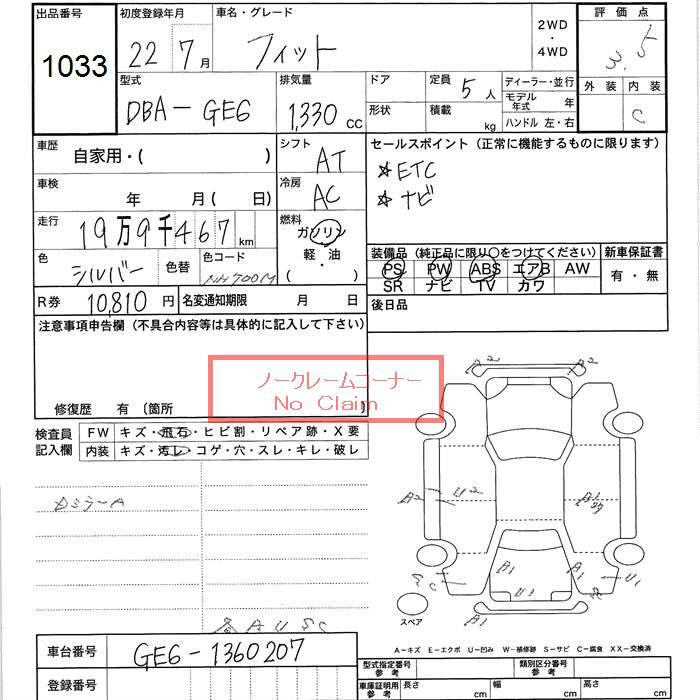 出品番号 初度登録年月 車名・グレード 2WD ・ 4WD 評価点
1033 22年 7月 フィット 3.5
型式 排気量 ドア 定員 5人 ディーラー・並行 外装 内装
DBA-GE6 1,330 CC 形状 積載 kg モデル年式 年 C
ハンドル 左・右
車歴 自家用・( ) シフト AT セールスポイント (正常に機能するものに限ります)
☆ETC
車検 年 月 ( 日) 冷房 AC ☆ナビ
走行 19万9千467 km 燃料 ガソリン
軽・油
( )
色 シルバー 色替 色コード NH700M
装備品 (純正品に限り○をつけてください) 新車保証書
PS PW ABS エアB AW 有・無
SR ナビ TV カワ
R券 10,810円 名変通知期限 月 日 後日品
注意事項申告欄 (不具合内容等は具体的に記入して下さい)
ノークレームコーナー
No Claim
修復歴 有 〔箇所 〕
検査員記入欄 FW キズ・飛石・ヒビ割・リペア跡・X要
内装 キズ・汚レ・コゲ・穴・スレ・キレ・破レ
A2 A2
A2 U2 B1
B1 B1 U1
U1
B1
スペア
A-キズ E-エクボ U-凹み W-補修跡 S-サビ C-腐食 XX-交換済
車台番号 GE6-1360207
登録番号
型式指定番号 参考 類別区分番号 参考
車庫証明用 参考 長さ cm 幅 cm 高さ cm